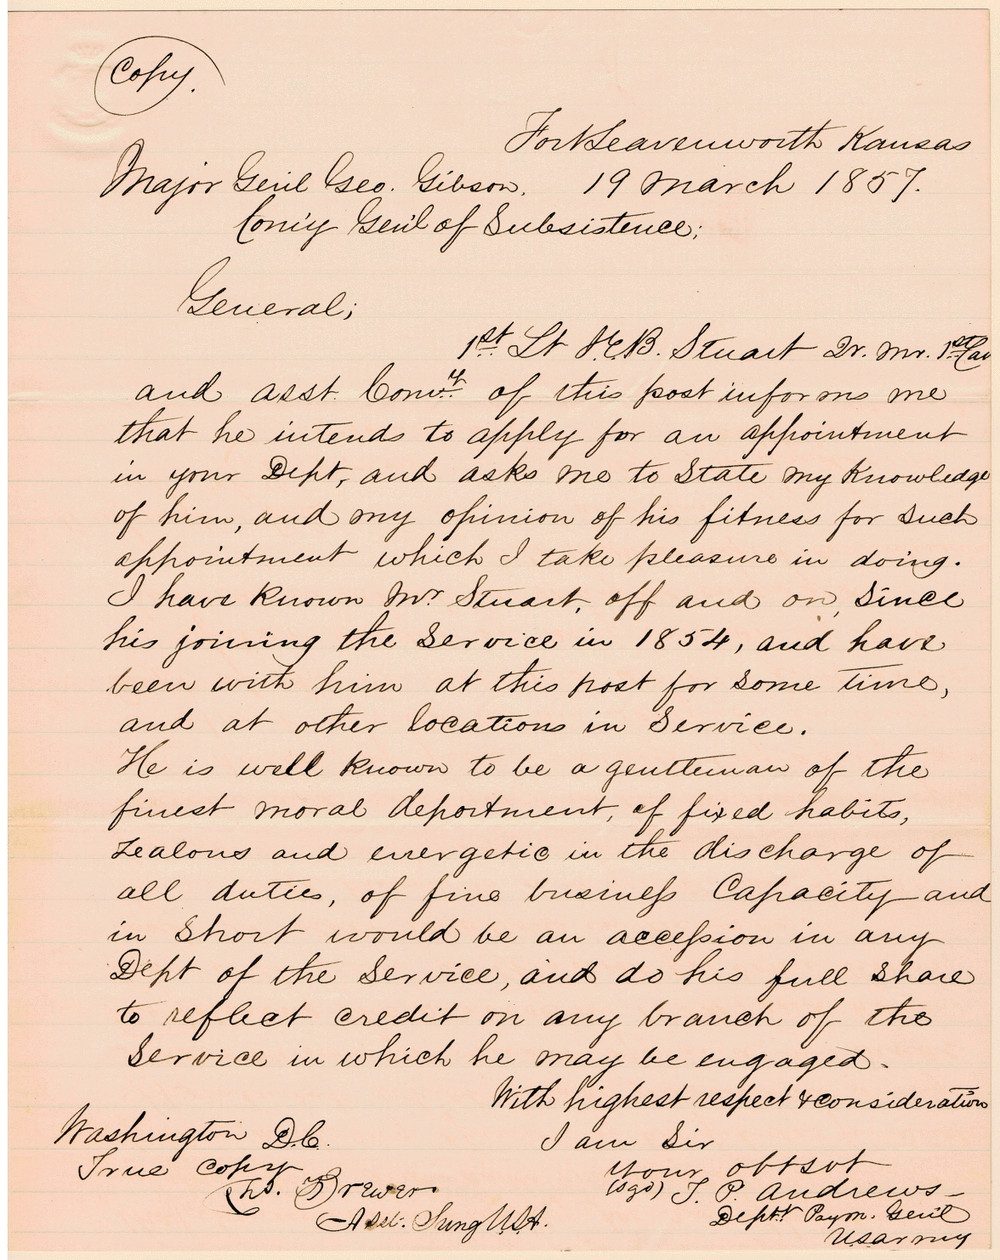 Copy.
Fort Leavenworth Kansas
Major Genl Geo. Gibson. 19 March 1857.
Com'y Gen'l of Subsistence;
General;
1st Lt J.E.B. Stuart Qr. Mr. 1st Cav
and asst. Comy. of this post informs me
that he intends to apply for an appointment
in your Dept, and asks me to State my Knowledge
of him, and my opinion of his fitness for such
appointment which I take pleasure in doing.
I have known Mr Stuart, off and on, since
his joining the Service in 1854, and have
been with him at this post for some time,
and at other locations in Service.
He is well known to be a gentleman of the
finest moral deportment, of fixed habits,
zealous and energetic in the discharge of
all duties, of fine business Capacity and
in short would be an accession in any
Dept of the Service, and do his full share
to reflect credit on any branch of the
Service in which he may be engaged.
With highest respect & consideration
Washington D.C. I am Sir
True copy your obt svt
Chs. Brewer (sgd) T. P. Andrews
Asst. Surg U.S.A. Dept. Paym. Genl
U.S. army